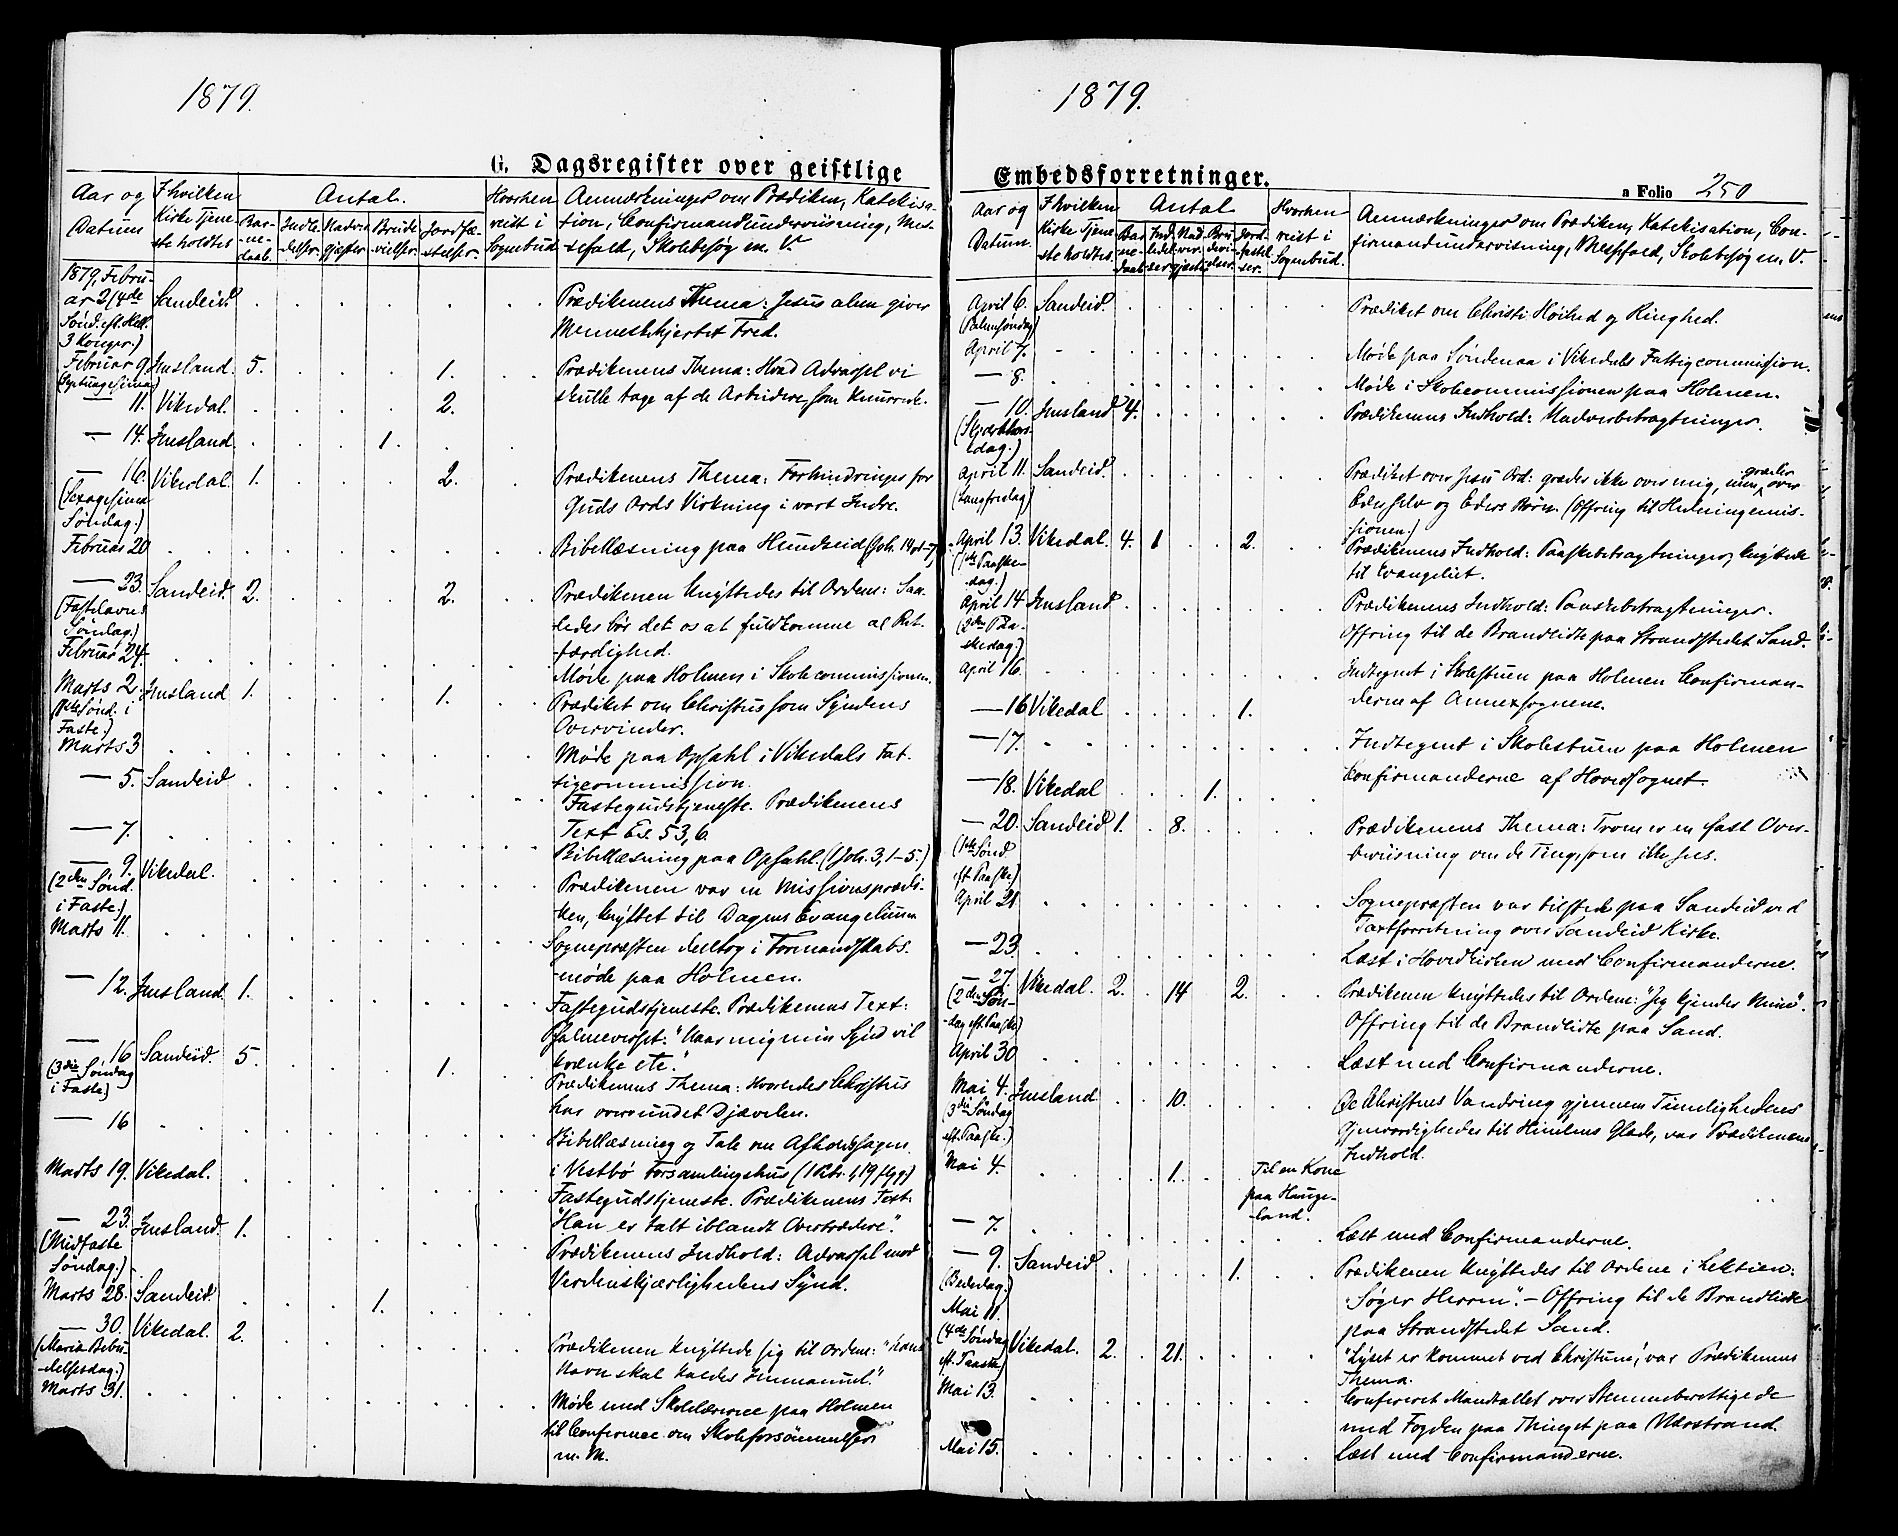 1879.
G. Dagsregister over geistlige
Aar og Datum
I hvilken Kirke Tjeneste holdtes
Antal.
Barnedaab.
Indledelser.
Nadvergjester
Brudevielser.
Jordfæstelser.
Hvorhen reist i Sognebud
Anmærkninger om Prædiken, Katekisation, Confirmandundervisning, Messefald, Skolebesøg m. V.
1879, Februar 2 (4de Sønd. eft. Hell. 3 Konger.) Sandeid. Prædikenens Thema: Jesus alene giver
Menneskehjertet Fred.
Februar 9 (Septuagesima) Imsland. 5. 1. Prædikenens Thema: Hvad Advarsel vi
skulle tage af de Arbeidere, som knurrede.
— 11. Vikedal. 2.
— 14. Imsland. 1.
— 16. (Sexagesima Søndag.) Vikedal. 1. 2. Prædikenens Thema: Forhindringer for
Guds Ords Virkning i vort Indre.
Februar 20 Bibellæsning paa Hundseid (Joh. 14
— 23. (Fastelavns Søndag.) Sandeid. 2. 2. Prædikenen knyttedes til Ordene: Saa-
ledes bør det os at fuldkomme al Ret-
færdighed.
Februar 24. Møde paa Holmen i Skolecommissionen.
Marts 2 (1ste Sønd. i Faste.) Imsland 1. 1. Prædiket om Christus som Syndens
Overvinder.
Marts 3 Møde paa Opsahl i Vikedals Fat-
tigcommission.
— 5. Sandeid Fastegudstjeneste. Prædikenens
Text Es. 53, 6.
— 7. Bibellæsning paa Opsahl. (Joh. 3, 1-5.)
— 9. (2den Sønd. i Faste.) Vikedal. Prædikenen var en Missionsprædi-
ken, knyttet til Dagens Evangelium
Marts 11. Sognepræsten deltog i Formandskabs-
møde paa Holmen.
— 12. Imsland. 1. Fastegudstjeneste. Prædikenens Text:
Psalmeverset: "Naar mig min Synd vil
krænke etc."
— 16 (3die Søndag i Faste) Sandeid. 5. 1. Prædikenens Thema: Hvorledes Christus
har overvundet Djævelen.
— 16 Bibellæsning og Tale om Afholdssagen
i Vestbø Forsamlingshus (1 Petr. 1, 19 flgg)
Marts 19. Vikedal. Fastegudstjeneste. Prædikenens Text:
"Han er talt iblandt Overtrædere".
— 23. (Midfaste Søndag.) Imsland. 1. Prædikenens Indhold: Advarsel mod
Verdenskjærlighedens Synd.
Marts 28. Sandeid. 1.
— 30. (Mariæ Bebudelsesdag.) Vikedal. 2. Prædikenen knyttede sig til Ordene: "Hans
Navn skal kaldes Immanuel."
Marts 31. Møde med Skolelærerne paa Holmen
til Conference om Skoleforsømmelser
m. M.
1879.
Embedsforretninger.
a Folio 250
Aar og Datum.
I hvilken Kirke Tjeneste holdtes.
Antal
Barnedaab
Indledelser
Nadvergjester
Brudevielser.
Jordfæstelser.
Hvorhen reist i Sognebud.
Anmærkninger om Prædiken, Katekisation, Confirmandundervisning, Messefald, Skolebesøg m. V.
April 6. (Palmesøndag) Sandeid. Prædiket om Christi Høihed og Ringhed.
April 7. Møde paa Søndenaa i Vikedals Fattigcommission.
— 8. Møde i Skolecommissionen paa Holmen.
— 10. (Skjærthorsdag.) Imsland 4. Prædikenens Indhold: Nadverbetragtninger.
April 11. (Langfredag) Sandeid. Prædiket over Jesu Ord: græder ikke over mig, men græder over
Eder selv og Eders Børn. (Offring til Hedningemis-
sionen.)
April 13. (1ste Paaskedag.) Vikedal. 4. 1 2. Prædikenens Indhold: Paaskebetragtninger, knyttede
til Evangeliet.
April 14 (2den Paaskedag.) Imsland. Prædikenens Indhold: Paaskebetragtninger.
Offring til de Brandlidte paa Strandstedet Sand.
April 16. Indtegnet i Skolestuen paa Holmen Confirman-
derne af Annexsognene.
— 16 Vikedal 1.
— 17. Indtegnet i Skolestuen paa Holmen
Confirmanderne af Hovedsognet.
— 18. Vikedal 1.
— 20. (1ste Sønd. eft. Paaske) Sandeid 1. 8. Prædikenens Thema: Troen er en fast Over-
beviisning om de Ting, som ikke sees.
April 21 Sognepræsten var tilstede paa Sandeid ved
Taxtforretning over Sandeid Kirke.
— 23 Læst i Hovedkirken med Confirmanderne.
— 27. (2den Søndag eft. Paaske) Vikedal. 2. 14 2. Prædikenen knyttedes til Ordene: "Jeg kjender Mine".
Offring til de Brandlidte paa Sand.
April 30 Læst med Confirmanderne.
Mai 4. (3die Søndag eft. Paaske.) Imsland 10. De Christnes Vandring gjennem Timelighedens
Gjenvordigheder til Himlens Glæde, var Prædikenens
Indhold.
Mai 4. 1. Til en Kone paa Haugeland.
— 7. Læst med Confirmanderne.
— 9. (Bededag.) Sandeid 1. Prædikenen knyttedes til Ordene i Lektien:
"Søger Herren". — Offring til de Brandlidte
paa Strandstedet Sand.
Mai 11. (4de Søndag eft. Paaske) Vikedal. 2. 21. "Lyset er kommet ved Christum", var Prædikenens
Thema.
Mai 13. Confereret Mandtallet over Stemmeberettigede
med Fogden paa Thinget paa Nærstrand.
Mai 15. Læst med Confirmanderne.